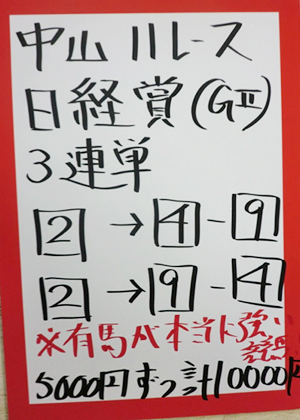 中山11レース
日経賞(GII)
3連単
2→4-9
2→9-4
※有馬が本当に強い
競馬
5000円ずつ計10000円